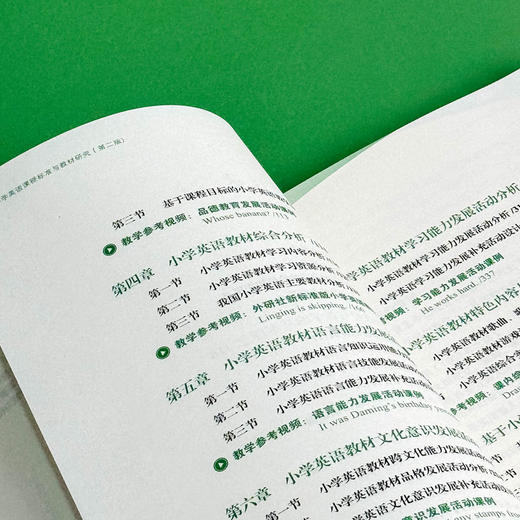 学英语课程标准与教材研究（第二版）
第三节 基于课程目标的小学英语
教学参考视频：品德教育发展活动课例
Whose banana? /11
第四章 小学英语教材综合分析 /1
第一节 小学英语教材学习内容分析
第二节 小学英语教材学习资源分析
第三节 我国小学英语主要教材分析
教学参考视频：外研社新标准版小学英语
Lingling is skipping. /16
第五章 小学英语教材语言能力发展
第一节 小学英语教材语言知识运用能力
第二节 小学英语教材语言技能发展
第三节 小学英语语言能力发展补充活
教学参考视频：语言能力发展活动课例
It was Daming's birthday
第六章 小学英语教材文化意识发展
第一节 小学英语教材跨文化能力发展活动
第二节 小学英语教材品格发展活动分析
小学英语文化意识发展补充活动
意识发展活动课例
stamps from
学英语教材学习能力发展活动分析
小学英语教材学习能力发展活动分析 /3
小学英语学习能力发展补充活动设计
教学参考视频：学习能力发展活动课例
He works hard. /337
学英语教材特色内容
小学英语教材歌曲
小学英语教材游戏
小学英语综合
教学参考视频：课内综
Dra
基于小